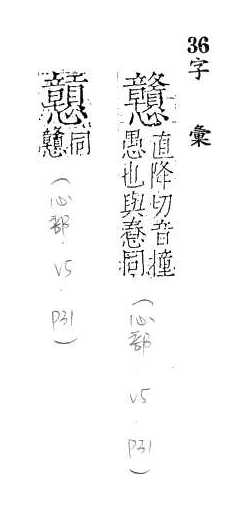 36字 彙
戇
直降切音撞
愚也與惷同
(心部 . V5 . P31)
戅
同
戇
(心部 . V5 . P31)